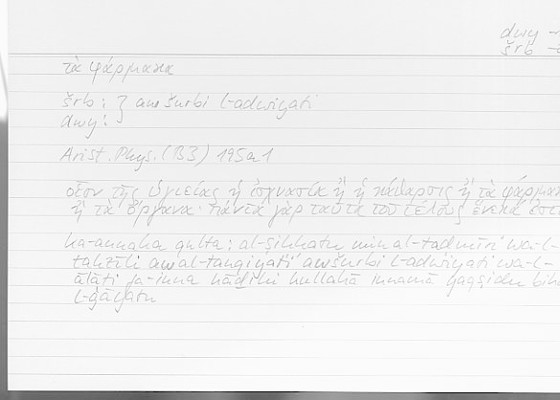 dwy
šrb
τὰ φάρμακα
šrb : } aw šurbi l-adwiyati
dwy :
Arist. Phys. (B3) 195a1
οἷον τῆς ὑγιείας ἡ ἰσχνασία ἢ ἡ κάθαρσις ἢ τὰ φάρμακ
ἢ τὰ ὄργανα· πάντα γὰρ ταῦτα τοῦ τέλους ἕνεκά ἐστ
ka-annaka qulta : al-ṣiḥḥatu min al-tadmīri wa-l-
tahzīli aw al-tanqiyati aw šurbi l-adwiyati wa-l-
ālāti fa-inna hāḏihi kullahā innamā yaqṣidu bih
l-ġāyatu